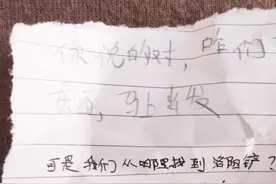 你说的对，咱们
东西，马上出发
可是我们从哪里找到洛阳铲？